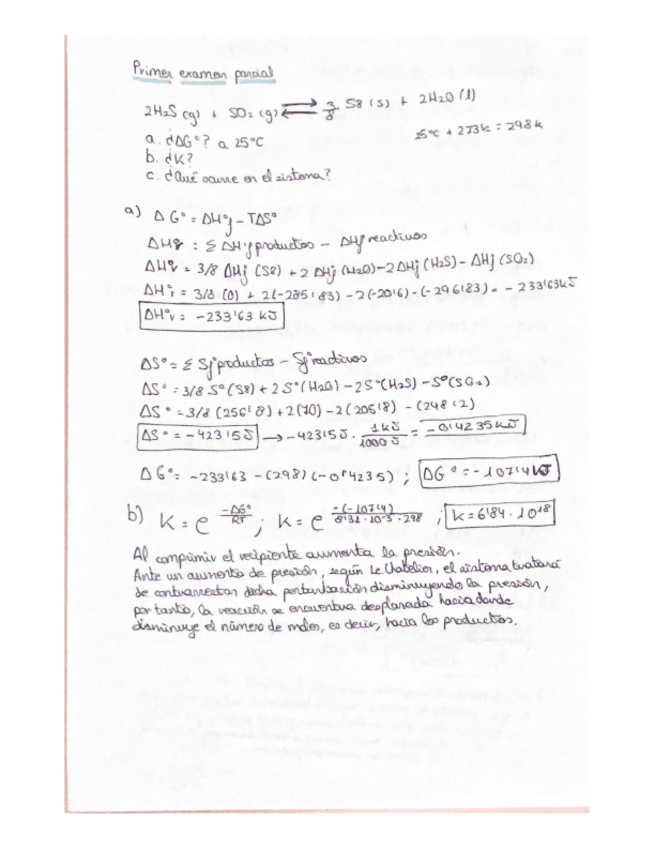 Primer examen parcial
2H2S (g) + SO2 (g) ⇄ 3/8 S8 (s) + 2H2O (l)
25ºC + 273k = 298k
a. ¿ΔGº? a 25ºC
b. ¿K?
c. ¿Qué ocurre en el sistema?
a) ΔGº = ΔHºf - TΔSº
ΔHºr : Σ ΔHºf productos - ΔHºf reactivos
ΔHºr = 3/8 ΔHf (S8) + 2 ΔHf (H2O) - 2 ΔHf (H2S) - ΔHf (SO2)
ΔHºr = 3/8 (0) + 2(-285'83) - 2(-20'6) - (-296'83) = - 233'63 kJ
ΔHºr = -233'63 kJ
ΔSº = Σ Sfº productos - Sfº reactivos
ΔSº = 3/8 Sº (S8) + 2 Sº (H2O) - 2 Sº (H2S) - Sº (SO2)
ΔSº = 3/8 (256'8) + 2(70) - 2(205'8) - (248'2)
ΔSº = -423'5 J → -423'5 J · 1 kJ / 1000 J = -0'4235 kJ
ΔGº = -233'63 - (298) (-0'4235) ; ΔGº = -107'4 kJ
b) K = e^(-ΔGº/RT) ; K = e^(-(-107'4)/8'31·10^-3·298) ; K = 6'84 · 10^18
Al comprimir el recipiente aumenta la presión.
Ante un aumento de presión, según Le Chatelier, el sistema tratará
de contrarrestar dicha perturbación disminuyendo la presión,
por tanto, la reacción se encuentra desplazada hacia donde
disminuye el número de moles, es decir, hacia los productos.